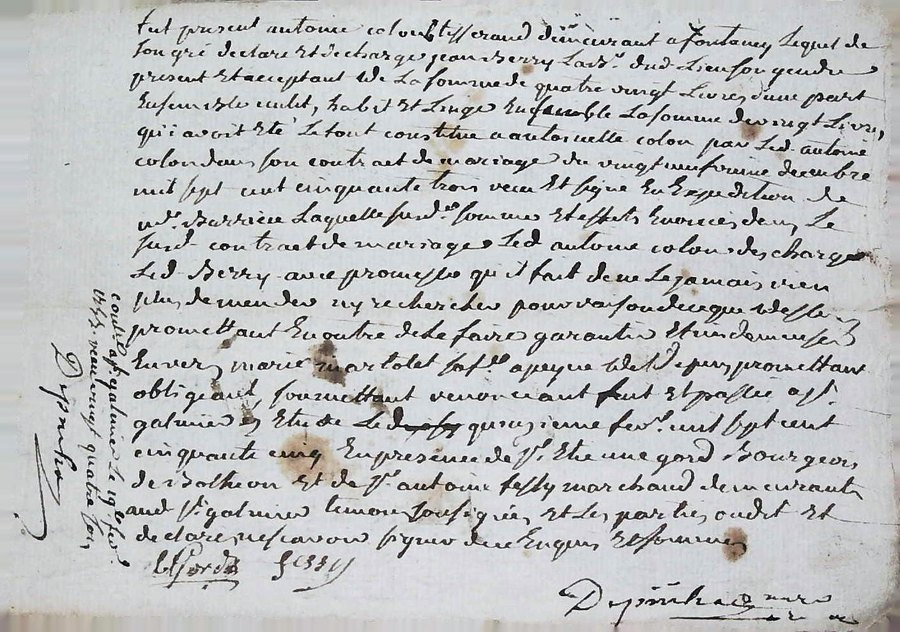 fut present antoine colon tisserand demeurant a fontaney Lequel de
son gré declare et decharge jean Berry Lab.r dud. Lieu son gendre
present et acceptant de La somme de quatre vingt Livres d'une part
habit et Linge Ensemble La somme de vingt Livres
qui avoit eté Le tout constitué a antoinette colon par Led. antoine
colon dans son contract de mariage du vingt neufvieme decembre
mil sept cent cinquante trois veu et signé En Expedition de
m.e Barriere Laquelle susd.e somme et effets Enoncés dans Le
susd. contract de mariage Led. antoine colon decharge
Led. Berry avec promesse qu'il fait de ne Le jamais rien
plus demender ny rechercher pour raison
promettant En outre de Le faire garantir
Envers marie sa f.e a peyne de promettant
obligeant, soumettant renonciant fait et passé a s.t
galmier Etude Led. quinzieme fev.r mil sept cent
cinquante cinq En presence de s.r Etienne gord Bourgeois
de Batheon et de s.r antoine fessy marchand demeurants
aud. s.t galmier temoins soussignés et Les parties ont dit et
declaré ne scavoir signer de ce Enquis et sommés
Gord fessy
nore
contr. a s.t galmier Le 19 fev.r
1755 receu vingt quatre sols